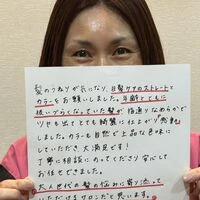 髪のうねりが気になり、白髪ケアのストレートと
カラーをお願いしました。年齢とともに
扱いづらくなっていた髪が指通りなめらかで
ツヤも出てとても綺麗に仕上がり感動
しました。カラーも自然で上品な色味に
していただき、大満足です！
丁寧に相談にのってくださり安心して
お任せできました。
大人世代の髪の悩みに寄り添って
いただけるサロンだと思います。